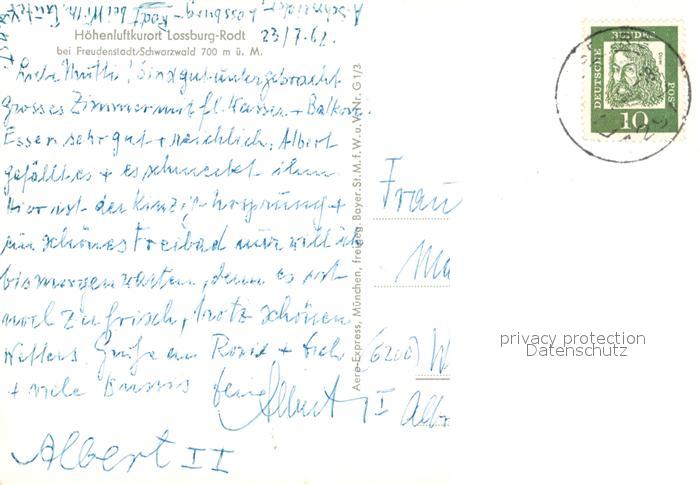 A. Schneider, Lossburg-Rodt bei
Höhenluftkurort Lossburg-Rodt
23/7.62.
bei Freudenstadt/Schwarzwald 700 m ü. M.
Liebe Mutti! Sind gut untergebracht
grosses Zimmer mit fl. Wasser + Balkon.
Essen sehr gut + reichlich, Albert
gefällt es + es schmeckt ihm
Hier ist der Kinzig-Ursprung +
ein schönes Freibad nur will ich
bis morgen warten, denn es ist
noch zu frisch, trotz schönen
Wetters. Grüße an Rosie + Dich
+ viele Bussis Deine
Albert I
Albert II
Aero-Express, München, freigeg. Bayer. St. M. f. W. u. V. Nr. G 1/3
DEUTSCHE BUNDES POST
10
Frau
Ma
(6200) W
Alb
privacy protection
Datenschutz